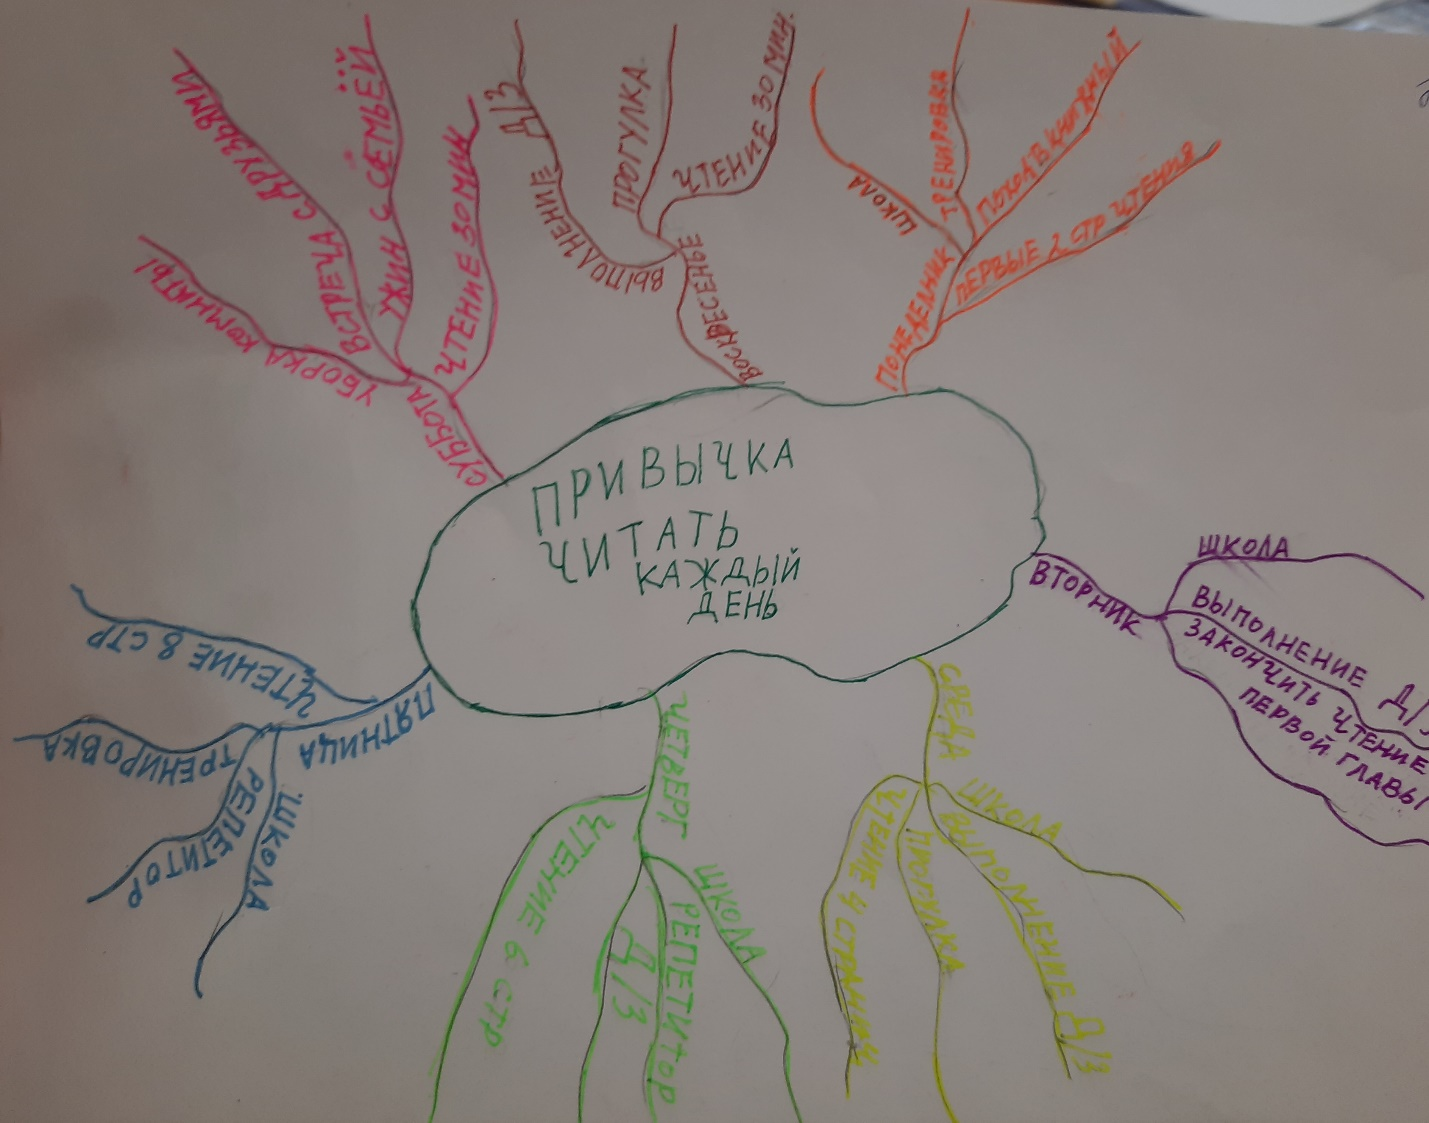 ПРИВЫЧКА
ЧИТАТЬ
КАЖДЫЙ
ДЕНЬ
ПОНЕДЕЛЬНИК
ШКОЛА
ТРЕНИРОВКА
ПОХОД В КНИЖНЫЙ
ПЕРВЫЕ 2 СТР ЧТЕНИЯ
ВТОРНИК
ШКОЛА
ВЫПОЛНЕНИЕ Д/З
ЗАКОНЧИТЬ ЧТЕНИЕ
ПЕРВОЙ ГЛАВЫ
СРЕДА
ШКОЛА
ВЫПОЛНЕНИЕ Д/З
ПРОГУЛКА
ЧТЕНИЕ 4 СТРАНИЦ
ЧЕТВЕРГ
ШКОЛА
РЕПЕТИТОР
Д/З
ЧТЕНИЕ 6 СТР
ПЯТНИЦА
ШКОЛА
РЕПЕТИТОР
ТРЕНИРОВКА
ЧТЕНИЕ 8 СТР
СУББОТА
УБОРКА КОМНАТЫ
ВСТРЕЧА С ДРУЗЬЯМИ
УЖИН С СЕМЬЁЙ
ЧТЕНИЕ 30 МИН
ВОСКРЕСЕНЬЕ
ВЫПОЛНЕНИЕ Д/З
ПРОГУЛКА
ЧТЕНИЕ 30 МИН.